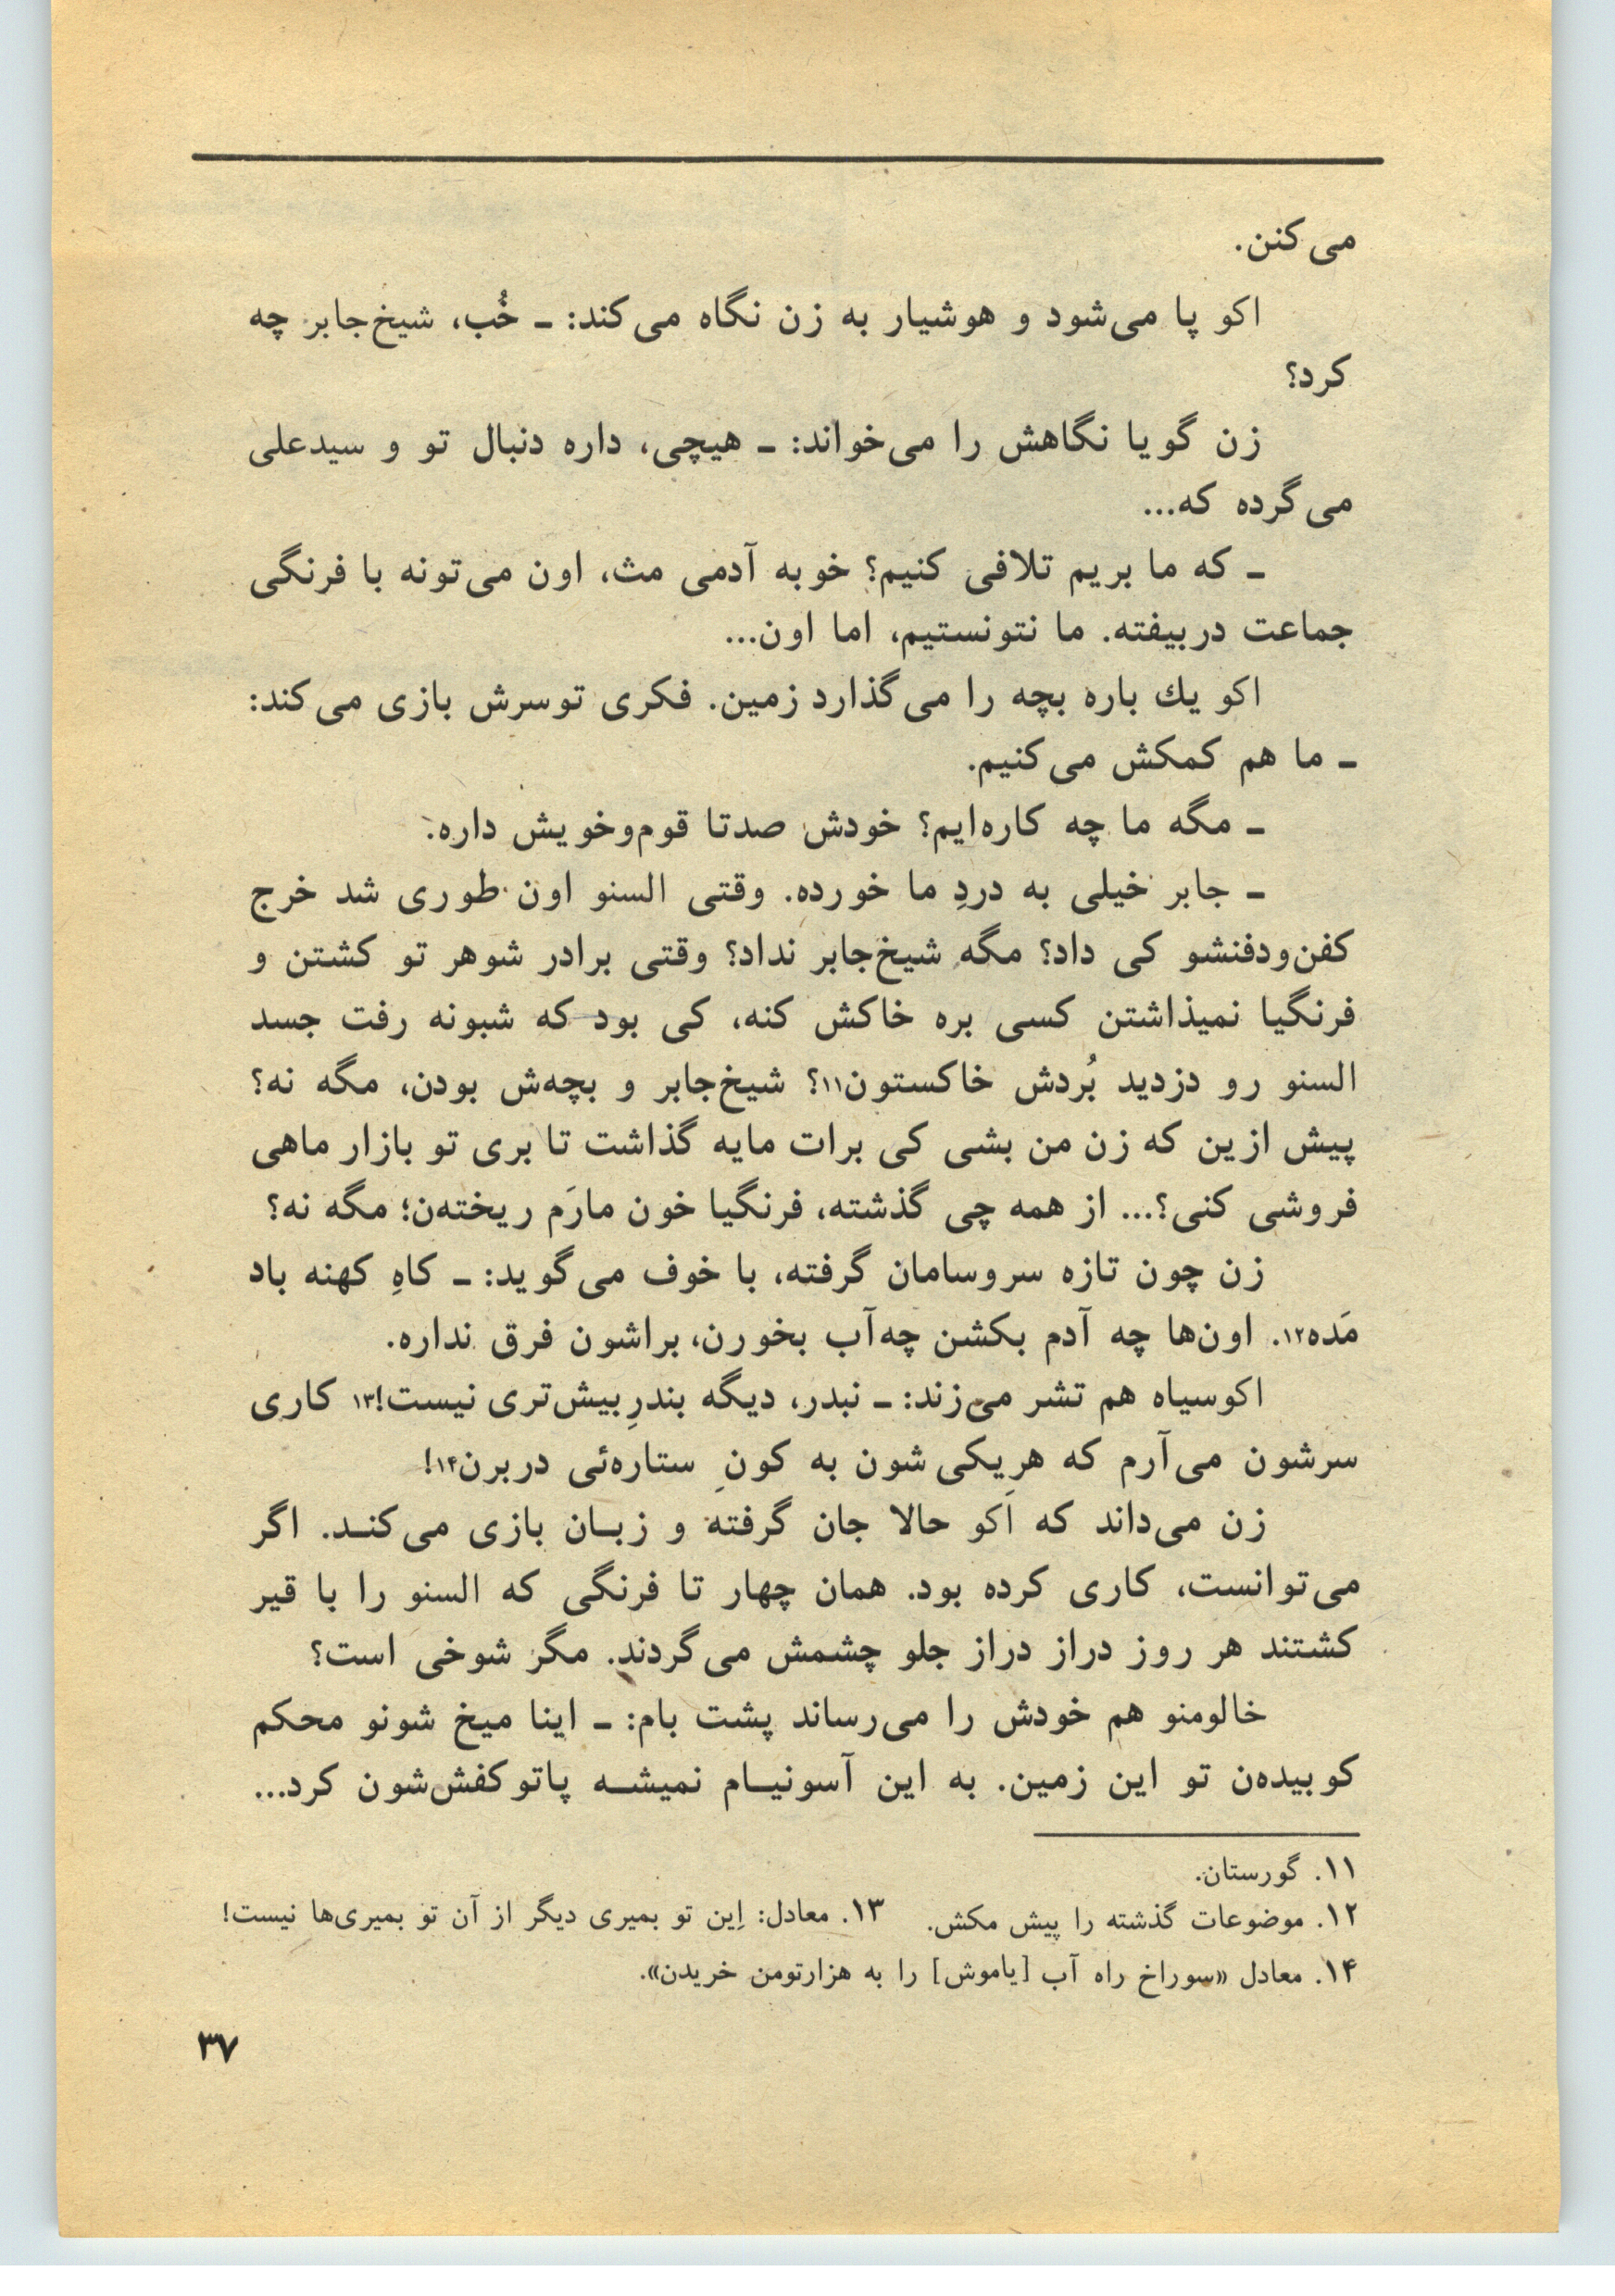 می‌کنن.
اکو پا می‌شود و هوشیار به زن نگاه می‌کند: ـ خُب، شیخ‌جابر چه
کرد؟
زن گویا نگاهش را می‌خواند: ـ هیچی، داره دنبال تو و سیدعلی
می‌گرده که...
ـ که ما بریم تلافی کنیم؟ خوبه آدمی مث، اون می‌تونه با فرنگی
جماعت دربیفته. ما نتونستیم، اما اون...
اکو یك باره بچه را می‌گذارد زمین. فکری توسرش بازی می‌کند:
ـ ما هم کمکش می‌کنیم.
ـ مگه ما چه کاره‌ایم؟ خودش صدتا قوم‌وخویش داره.
ـ جابر خیلی به دردِ ما خورده. وقتی السنو اون طوری شد خرج
کفن‌ودفنشو کی داد؟ مگه شیخ‌جابر نداد؟ وقتی برادر شوهر تو کشتن و
فرنگیا نمیذاشتن کسی بره خاکش کنه، کی بود که شبونه رفت جسد
السنو رو دزدید بُردش خاکستون۱۱؟ شیخ‌جابر و بچه‌ش بودن، مگه نه؟
پیش ازین که زن من بشی کی برات مایه گذاشت تا بری تو بازار ماهی
فروشی کنی؟... از همه چی گذشته، فرنگیا خون مارَم ریخته‌ن؛ مگه نه؟
زن چون تازه سروسامان گرفته، با خوف می‌گوید: ـ کاهِ کهنه باد
مَده۱۲. اون‌ها چه آدم بکشن چه‌آب بخورن، براشون فرق نداره.
اکوسیاه هم تشر می‌زند: ـ نبدر، دیگه بندرِبیش‌تری نیست!۱۳ کاری
سرشون می‌آرم که هریکی‌شون به کونِ ستاره‌ئی دربرن۱۴!
زن می‌داند که اَکو حالا جان گرفته و زبـان بازی می‌کنـد. اگر
می‌توانست، کاری کرده بود. همان چهار تا فرنگی که السنو را با قیر
کشتند هر روز دراز دراز جلو چشمش می‌گردند. مگر شوخی است؟
خالومنو هم خودش را می‌رساند پشت بام: ـ اینا میخ شونو محکم
کوبیده‌ن تو این زمین. به این آسونیـام نمیشـه پاتوکفش‌شون کرد...
۱۱. گورستان.
۱۲. موضوعات گذشته را پیش مکش. ۱۳. معادل: اِین تو بمیری دیگر از آن تو بمیری‌ها نیست!
۱۴. معادل «سوراخ راه آب [یاموش] را به هزارتومن خریدن».
۳۷